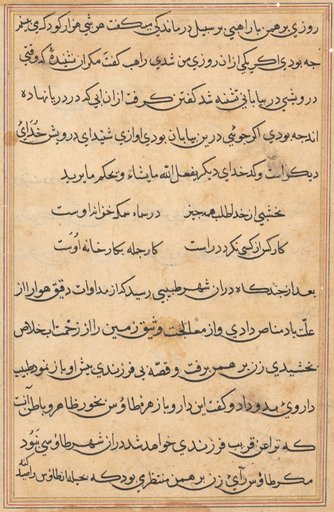 روزی برهمن با راهبی بر سبیل درماندکی میکفت هر شبی هزار کودک می بینم
چه بودی اکر یکی ازان روزی من شدی راهب کفت مکر از نشنیدهٔ که وقتی
درویشی در بیابانی تشنه شد کفتن کرفت ازان ابی که در دریا نهاده
اند چه بودی اکر جویی درین بیابان بودی اوازی شنید ای درویش خدای
دیکر است و کدخدای دیکر یفعل الله مایشاء و یحکم ما یرید
نخشبی از خدا طلب همه چیز در سماء سمک خزانه اوست
کار کس از کسی نکردد راست کار جمله بکارخانه اوست
بعد از چند کاه در ان شهر طبیبی رسید که از مداوات دقیق هوا را از
علت باد مناص دادی و از معالجت وثیق زمین را از زحمت تاب خلاص
بخشیدی زن برهمن برفت و قصهٔ بی فرزندی پیش او باز نمود طبیب
داروی بدو داد و کفت این دارو با زهرهٔ طاوس بخور ظاهر و باطن آنست
که ترا عن قریب فرزندی خواهد شد در ان شهر طاوسی نبود
مکر طاوس رای زن برهمن منتظری بود که بحیله ان طاوس را